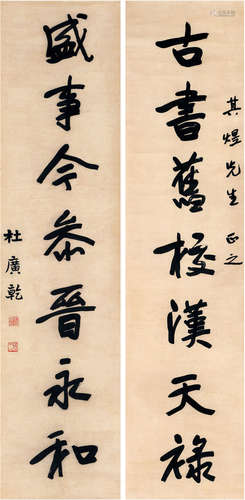 古書舊校漢天祿
其煜先生 正之
盛事今恭晉永和
杜廣乾